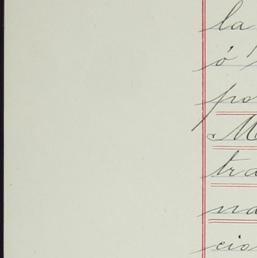 la
ó
po
M
tra
na
cio